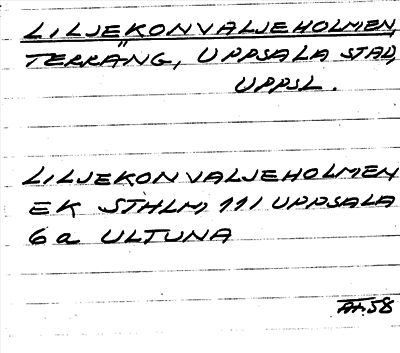 LILJEKONVALJEHOLMEN,
TERRÄNG, UPPSALA STAD,
UPPSL.
LILJEKONVALJEHOLMEN
EK STHLM, 111 UPPSALA
6a ULTUNA